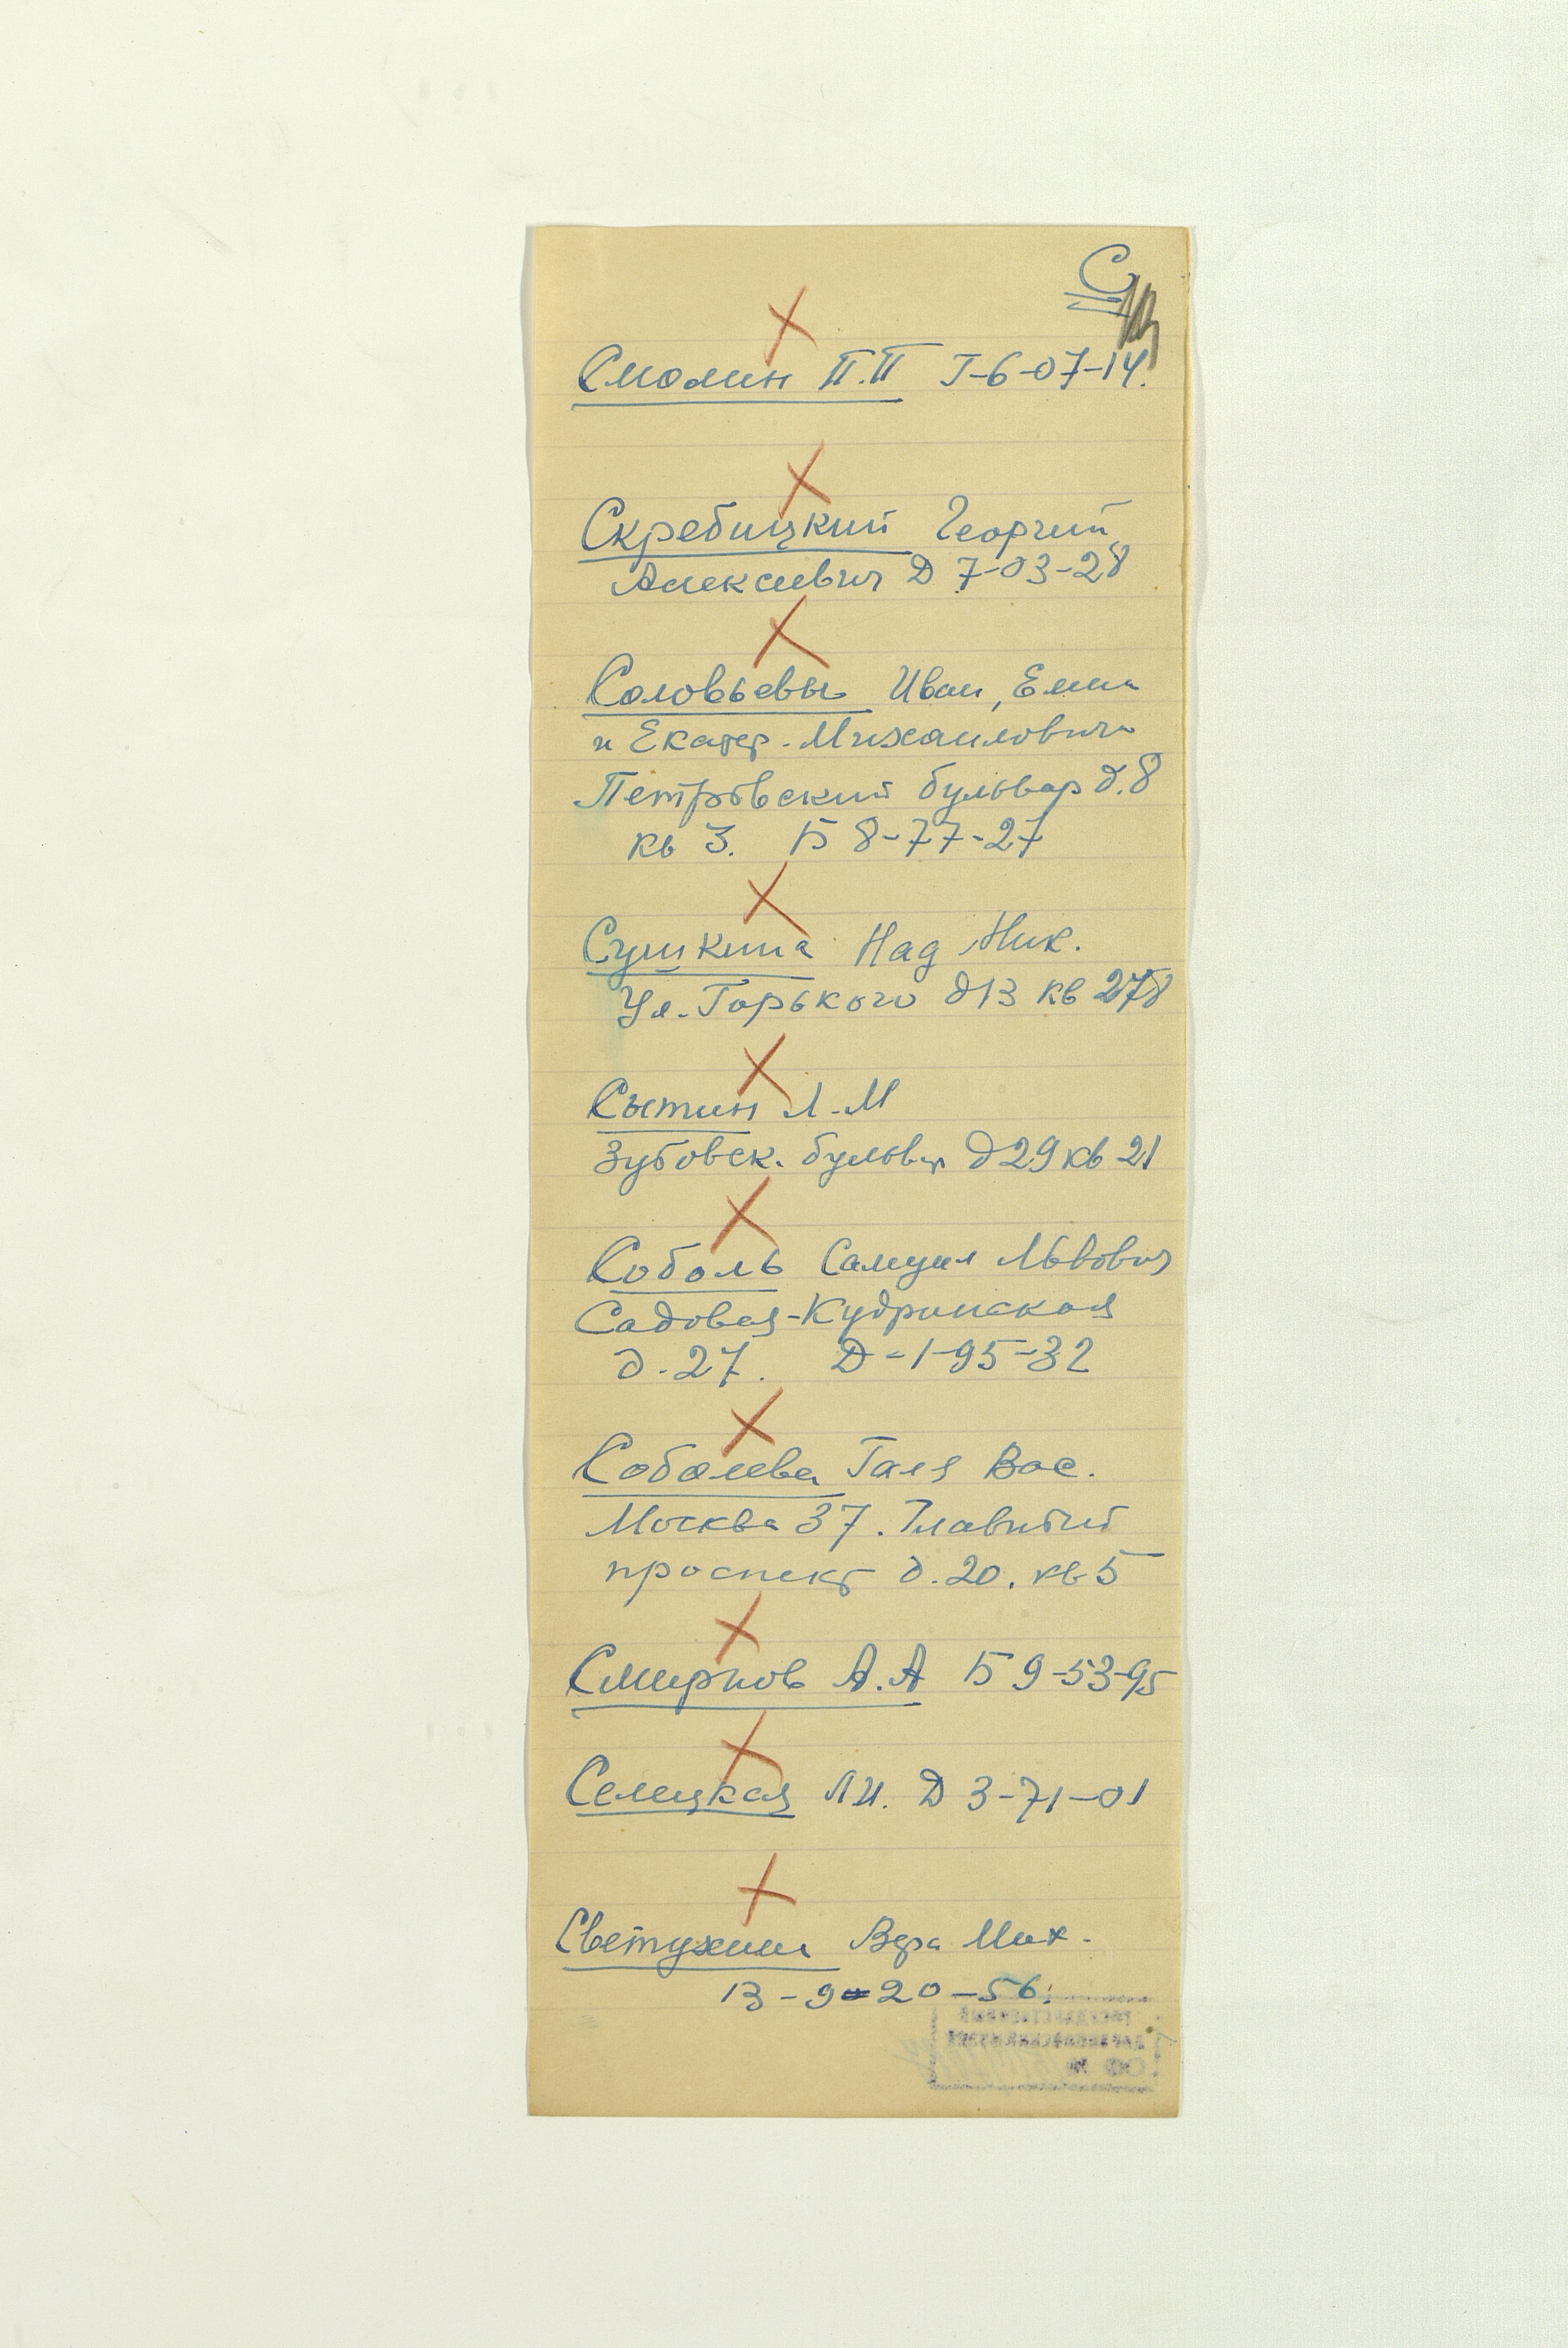 С
Смолин П.П Г-6-07-14.
Скребицкий Георгий
Алексеевич Д 7-03-28
Соловьевы Иван, Елена
и Екатер. Михайлович
Петровский бульвар д.8
кв 3. Б 8-77-27
Сушкина Над Ник.
Ул. Горького д13 кв 278
Сытин Л.М
Зубовск. бульвар д29 кв 21
Соболь Самуил Львович
Садовая-Кудринская
д.27. Д-1-95-32
Соболева Галя Вас.
Москва 37. Главный
проспект д.20. кв 5
Смирнов А.А Б 9-53-95
Селецкая Л И. Д 3-71-01
Вера Мих.
-9-20-56.
ГОСУДАРСТВЕННЫЙ
ДАРВИНОВСКИЙ МУЗЕЙ
№